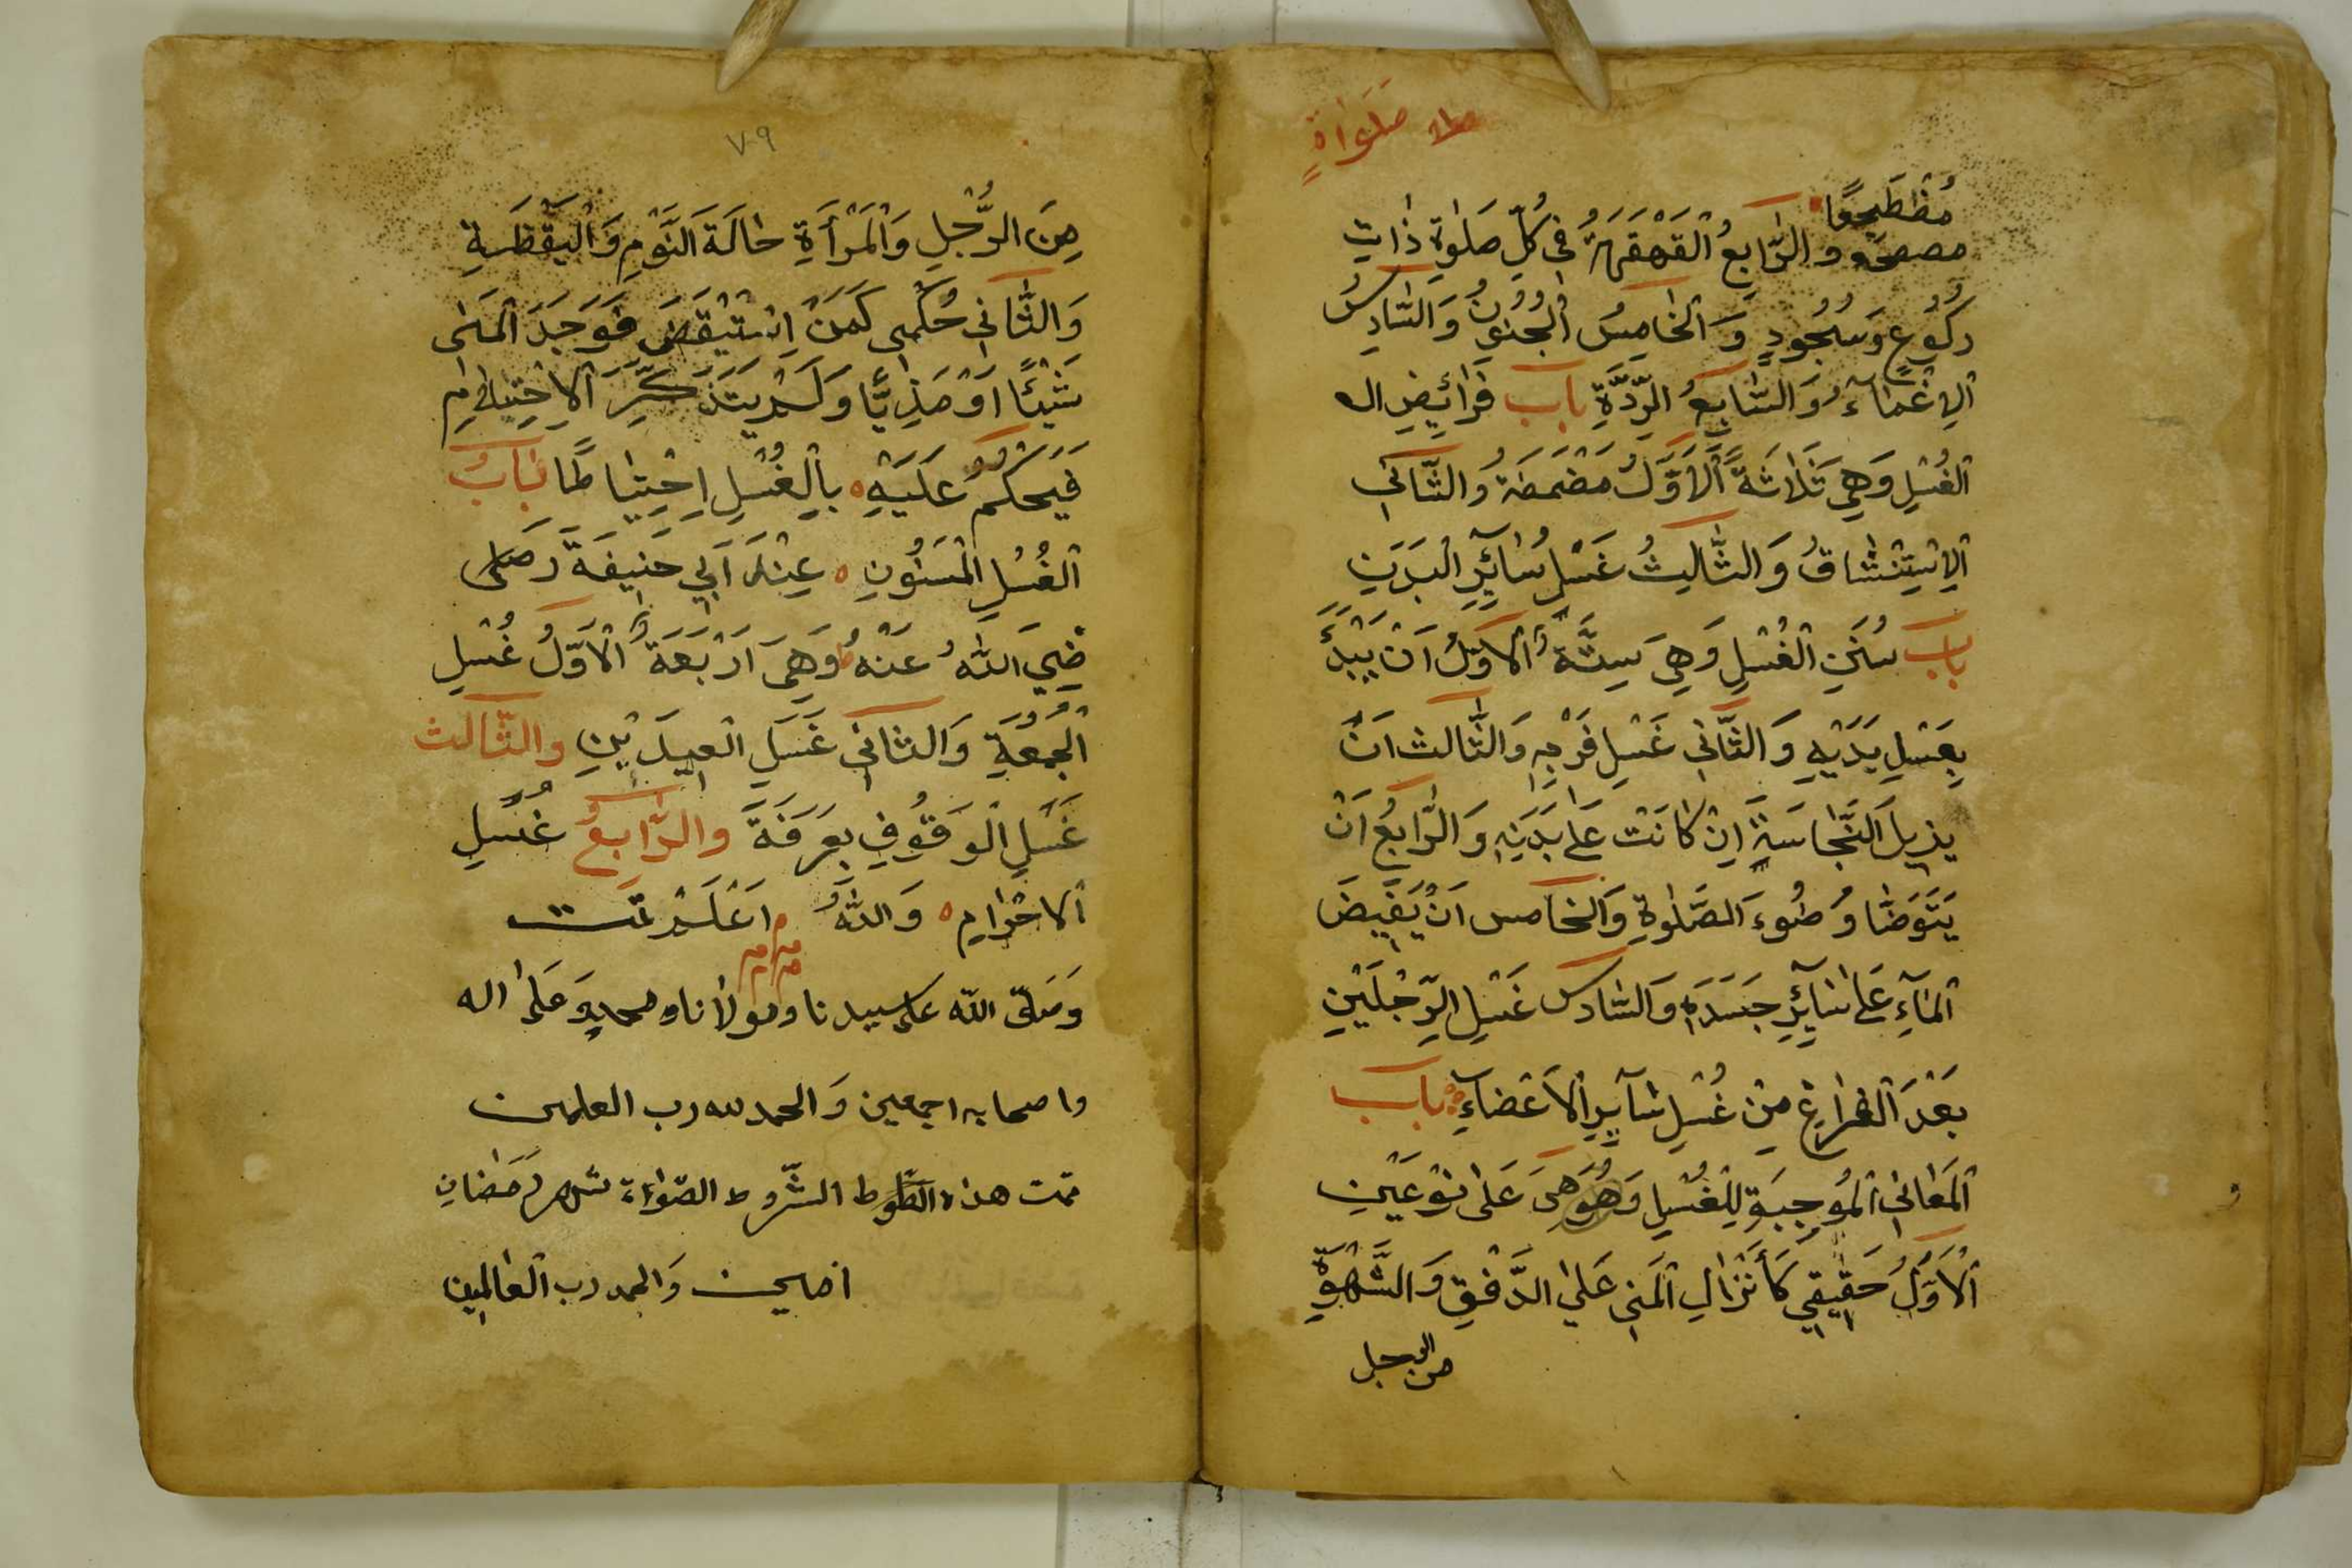 صَلَوٰاةٍ
مُضْطَجِعًا
والرَّابِعُ الْقَهْقَهَةُ فِي كُلِّ صَلٰوةٍ ذَاتِ
رُكُوعٍ وَسُجُودٍ وَالْخَامِسُ الْجُنُونُ وَالسَّادِسُ
اَلِاغْمَآءُ وَالسَّابِعُ الرِّدَّةِ بَاب فَرَائِضِ اله
الْغُسْلِ وَهِيَ ثَلَاثَةٌ اَلْاَوَّلُ مَضْمَضَةُ وَالثَّانِي
اَلِاسْتِنْشَاقُ وَالثَّالِثُ غَسْلُ سَائِرِ الْبَدَنِ
بَاب سُنَنِ الْغُسْلِ وَهِيَ سِتَّةٌ اَلْاَوَّلُ اَنْ يَبْدَأَ
بِغَسْلِ يَدَيْهِ وَالثَّانِي غَسْلِ فَرْجِهِ وَالثَّالِث اَنْ
يزيلَ النَّجَاسَةِ اِنْ كَانَتْ عَلٰى بَدَنِهِ وَالرَّابِعُ اَنْ
يَتَوَضَّأ وُضُوءَ الصَّلٰوةِ وَالْخَامس اَنْ يَفِيضَ
اَلْمَآءِ عَلٰى سَآئِرِ جَسَدِهِ وَالسَّادس غَسْلِ الرِّجْلَيْنِ
بَعْدَ الْفَرَاغِ مِنْ غُسْلِ سَآئِرِ الْاَعْضَاءِ بَاب
اَلْمَعَانِي الْمُوجِبَةِ لِلْغُسْلِ وَهُوَ هِيَ عَلٰى نَوْعَيْنِ
اَلْاَوَّلُ حَقِيقِي كَأَنْزَالِ الْمَنِي عَلَى الدَّفْقِ وَالشَّهْوَةِ
من الرجل
٧٩
مِنَ الرَّجُلِ وَالْمَرْأَةِ حَالَةَ النَّوْمِ وَالْيَقْظَةِ
وَالثَّانِي حُكْمِي كَمَنْ اِسْتَيْقَضَ فَوَجَدَ الْمَنٰى
شَيْئًا اَوْ مَذِيًّا وَلَمْ يَتَذَكَّرَ الْاِحْتِلَامِ
فَيَحْكُمُ عَلَيْهِ بِالْغُسْلِ اِحْتِيَاطًا بَابُ
الْغُسْلِ الْمَسْنُونِ عِنْدَ اَبِي حَنِيفَةَ رَضى
ضِيَ اللهُ عَنْهُ وَهِيَ اَرْبَعَةٌ اَلْاَوَّلُ غُسْلِ
الْجُمُعَةِ وَالثَّانِي غَسْلِ الْعِيدَيْنِ وَالثَّالث
غَسْلِ الْوَقُوفِ بِعَرَفَةَ وَالرَّابِعُ غُسْلِ
اَلاحْرَامِ وَاللهُ اَعْلَمْ تَمَّت
وَصَلَّى اللّه عَلى سيدنا ومولانا ومحمدٍ وَعَلٰى اله
واصحابه اجمعين وَالحمد لله رب العلمين
تمت هذه الشّروط الصّلواة شهر رَمَضَانِ
وَالحمد رب الْعَالَمِين